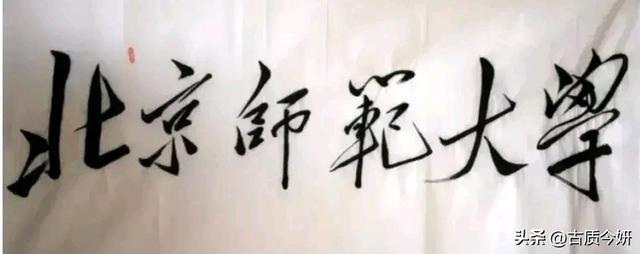 北京師範大學
头条@古质今妍